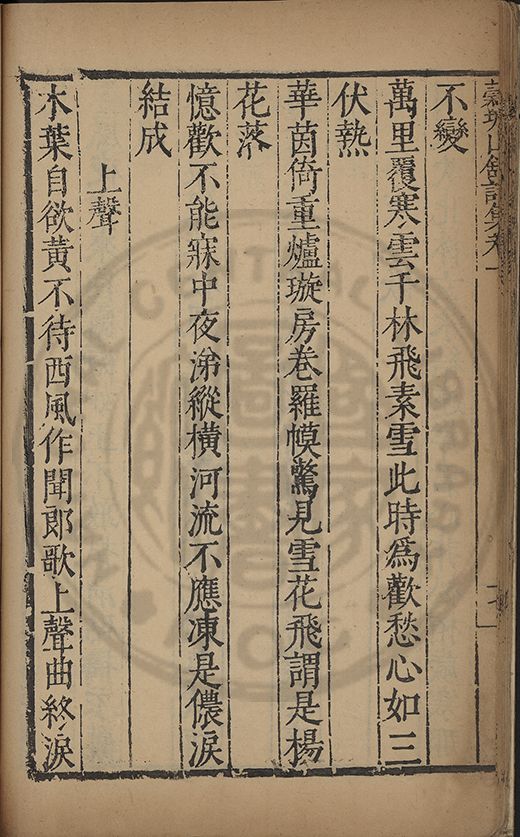 山舘詩集卷一
不變
萬里覆寒雲千林飛素雪此時爲歡愁心如三
伏熱
華茵倚重爐璇房卷羅幙驚見雪花飛謂是楊
花落
憶歡不能寐中夜涕縱橫河流不應凍是儂淚
結成
上聲
木葉自欲黃不待西風作聞郎歌上聲曲終淚